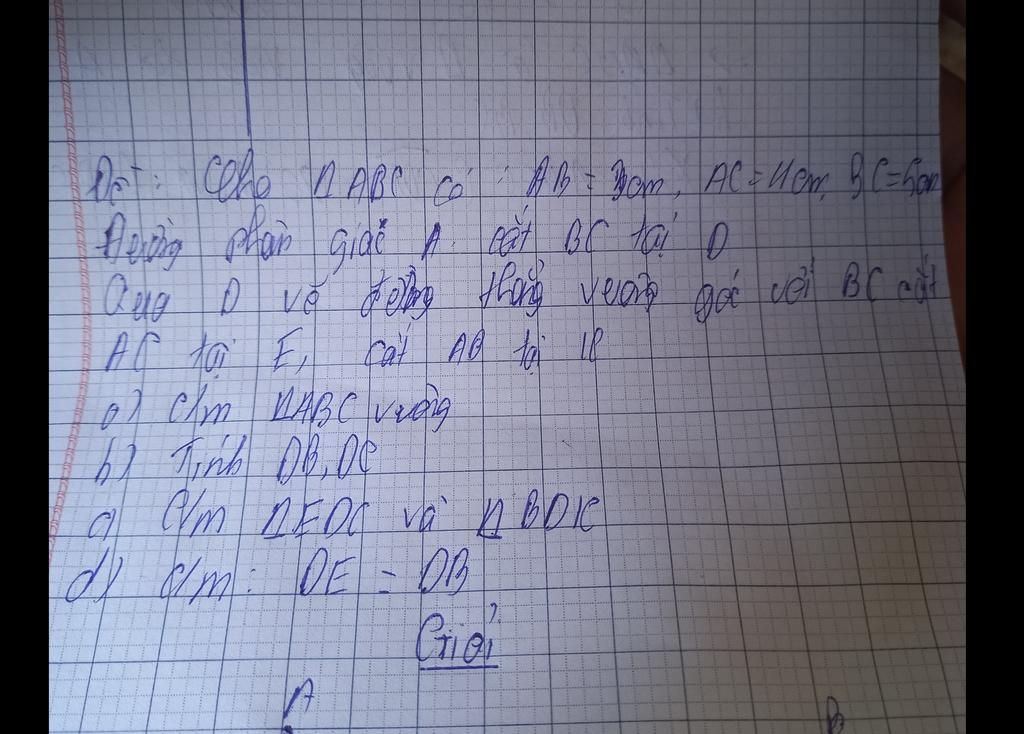 Đề: Cho ΔABC có: AB = 3cm, AC = 4cm, BC = 5cm
Đường phân giác A cắt BC tại D
Qua D vẽ đường thẳng vuông góc với BC cắt
AC tại E, cắt AB tại K
a) c/m ΔABC vuông
b) Tính DB, DC
c) C/m ΔEDC và ΔBDK
d) c/m: DE = DB
Giải
A